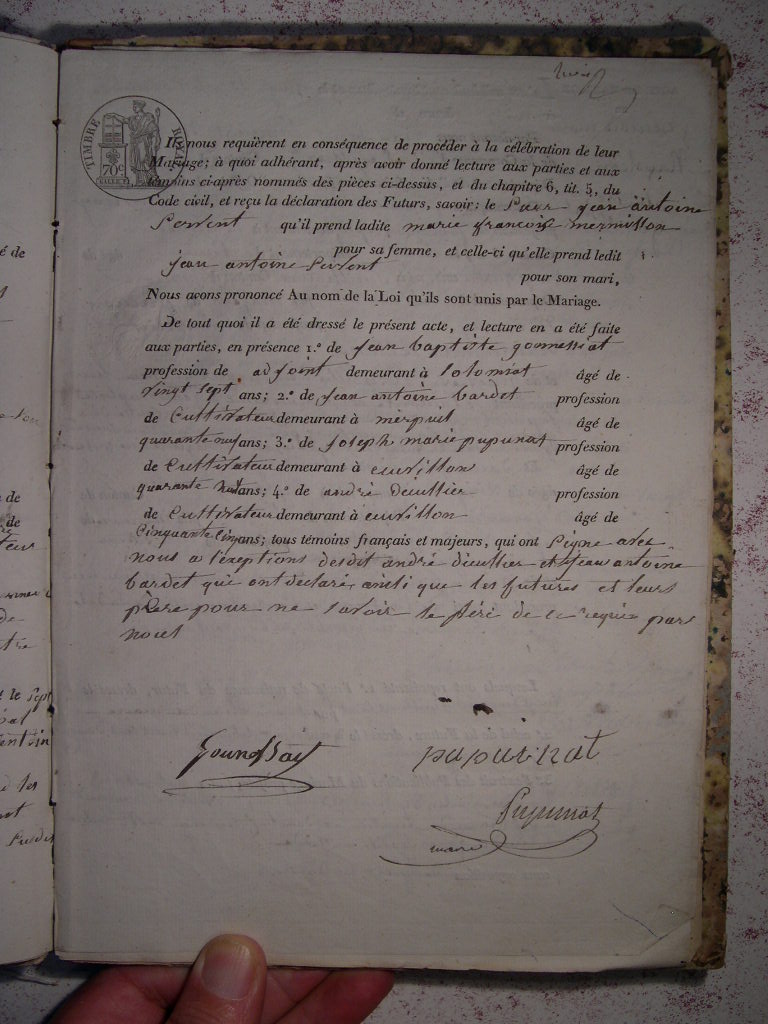 TIMBRE ROYAL
70c
Ils nous requièrent en conséquence de procéder à la célébration de leur
Mariage; à quoi adhérant, après avoir donné lecture aux parties et aux
témoins ci-après nommés des pièces ci-dessus, et du chapitre 6, tit. 5, du
Code civil, et reçu la déclaration des Futurs, savoir: le Sieur jean antoine
Servent qu'il prend ladite marie françoise mermillon
pour sa femme, et celle-ci qu'elle prend ledit
jean antoine Servent
pour son mari,
Nous avons prononcé Au nom de la Loi qu'ils sont unis par le Mariage.
De tout quoi il a été dressé le présent acte, et lecture en a été faite
aux parties, en présence 1.º de jean baptiste
profession de adjoint demeurant à Solomiat âgé de
vingt sept ans; 2.º de jean antoine bardet profession
de Cultivateur demeurant à merpuit âgé de
quarante ans; 3.º de joseph marie pupunat profession
de Cultivateur demeurant à cuvillon âgé de
quarante huit ans; 4.º de andré profession
de Cultivateur demeurant à cuvillon âgé de
Cinquante Cinq ans; tous témoins français et majeurs, qui ont Signe avec
nous a l'exeptions desdit andré et jean antoine
bardet qui ont declaré ainsi que les futures et leurs
père pour ne Savoir le fére de ce requis par
nous
pupunat
Pupunat
maire